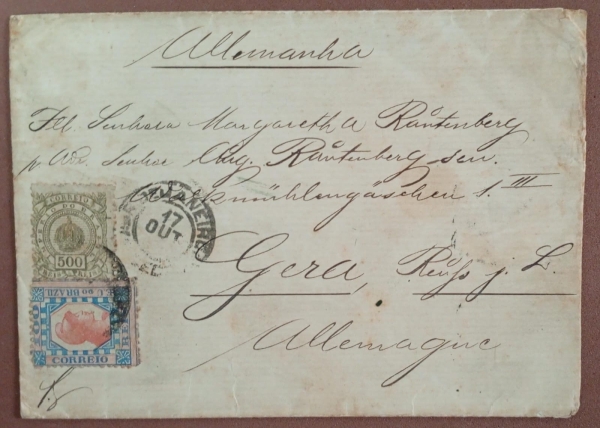 Allemanha
Ill. Senhora Margareth A Rautenberg
p. Adr. Senhor Aug. Rautenberg sen.
mühlengäschen 1. III
Gera, Reuß j. L.
Allemagne
CORREIO
500
JANEIRO
17
OUT
E. U. DO BRAZIL
CORREIO